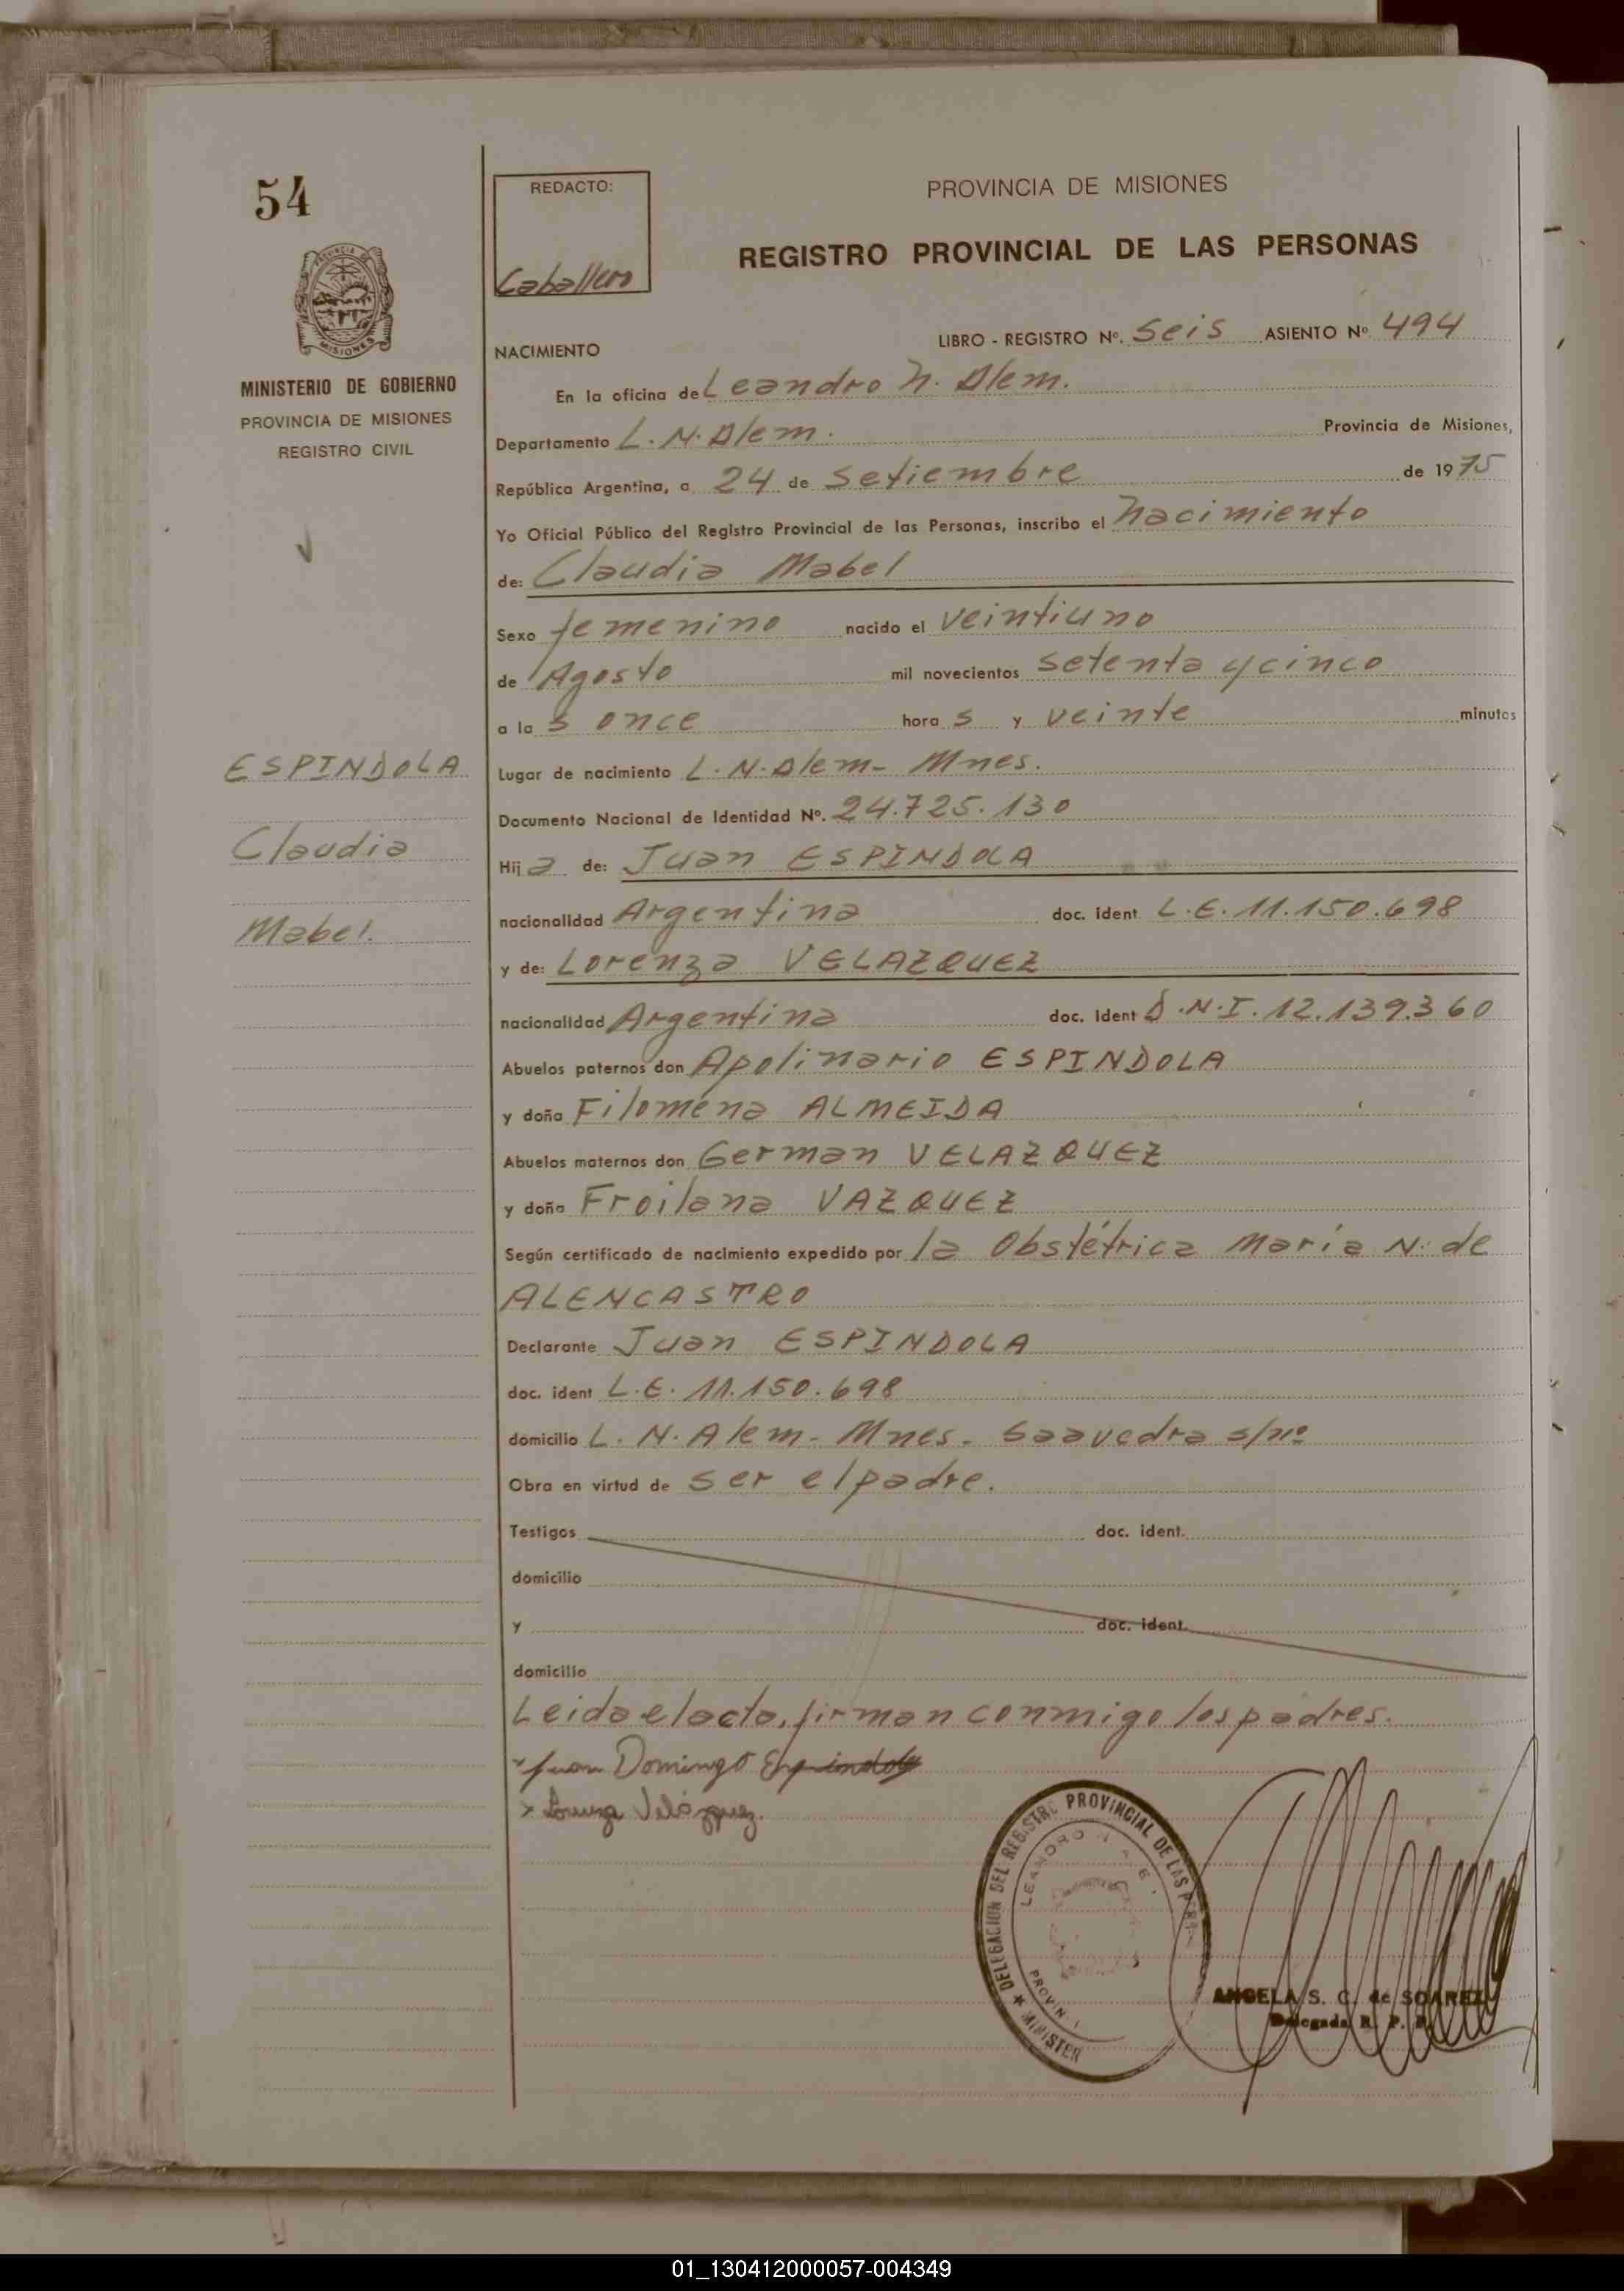 54
PROVINCIA DE MISIONES
MINISTERIO DE GOBIERNO
PROVINCIA DE MISIONES
REGISTRO CIVIL
ESPINDOLA
Claudia
Mabel.
REDACTO:
Caballero
PROVINCIA DE MISIONES
REGISTRO PROVINCIAL DE LAS PERSONAS
LIBRO - REGISTRO Nº. Seis ASIENTO Nº 494
NACIMIENTO
En la oficina de Leandro N. Alem.
Departamento L. N. Alem. Provincia de Misiones,
República Argentina, a 24 de Setiembre de 1975
Yo Oficial Público del Registro Provincial de las Personas, inscribo el nacimiento
de: Claudia Mabel
Sexo femenino nacido el veintiuno
de Agosto mil novecientos setenta y cinco
a la s once hora s y veinte minutos
Lugar de nacimiento L. N. Alem - Mnes.
Documento Nacional de Identidad Nº. 24.725.130
Hij a de: Juan ESPINDOLA
nacionalidad Argentina doc. ident L.E. 11.150.698
y de: Lorenza VELAZQUEZ
nacionalidad Argentina doc. ident D.N.I. 12.139.360
Abuelos paternos don Apolinario ESPINDOLA
y doña Filomena ALMEIDA
Abuelos maternos don German VELAZQUEZ
y doña Froilana VAZQUEZ
Según certificado de nacimiento expedido por la Obstétrica María N. de
ALENCASTRO
Declarante Juan ESPINDOLA
doc. ident L.E. 11.150.698
domicilio L. N. Alem - Mnes. Saavedra s/nº
Obra en virtud de ser el padre.
Testigos doc. ident.
domicilio
y doc. ident.
domicilio
Leida el acta, firman conmigo los padres.
Juan Domingo Espindola
x Lorenza Velázquez.
DELEGACION DEL REGISTRO PROVINCIAL DE LAS
LEANDRO N
MINISTER
ANGELA S. C. de SOAREZ
Delegada R. P. P.
01_130412000057-004349